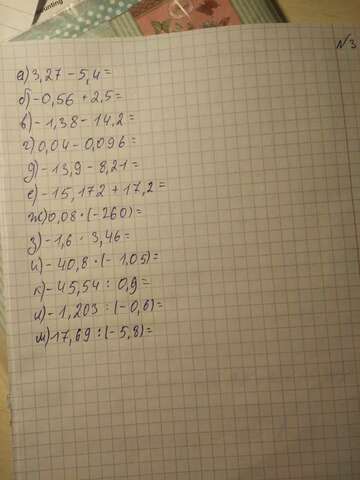 unting
N 3
а) 3,27 - 5,4 =
б) - 0,56 + 2,5 =
в) - 1,38 - 14,2 =
г) 0,04 - 0,096 =
д) - 13,9 - 8,21 =
е) - 15,172 + 17,2 =
ж) 0,08 · (- 260) =
з) - 1,6 · 3,46 =
и) - 40,8 · (- 1,05) =
к) - 45,54 : 0,9 =
л) - 1,203 : (- 0,6) =
м) 17,69 : (- 5,8) =